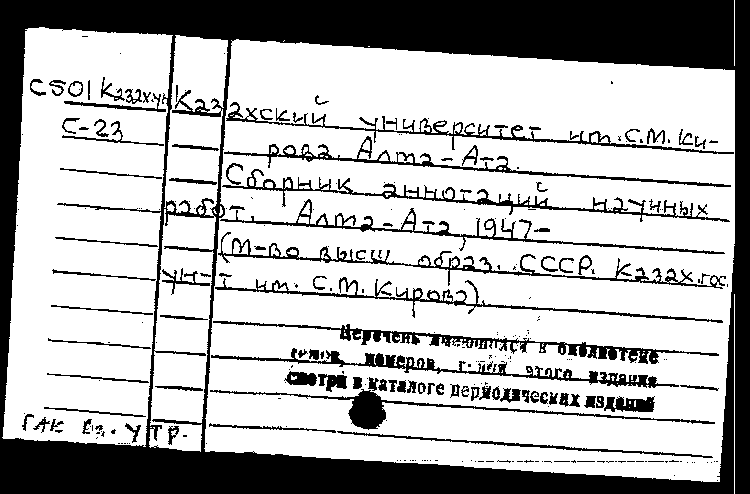 С501 Казах.ун Казахский университет им. С.М. Ки-
С-23
рова. Алма-Ата.
Сборник аннотаций научных
работ. Алма-Ата, 1947-
(М-во высш. образ. СССР. Казах.гос.
ун-т им. С.М. Кирова).
Перечень имеющихся в библиотеке
томов, номеров, годов этого издания
смотри в каталоге периодических изданий
ГАК Вз. УТР.